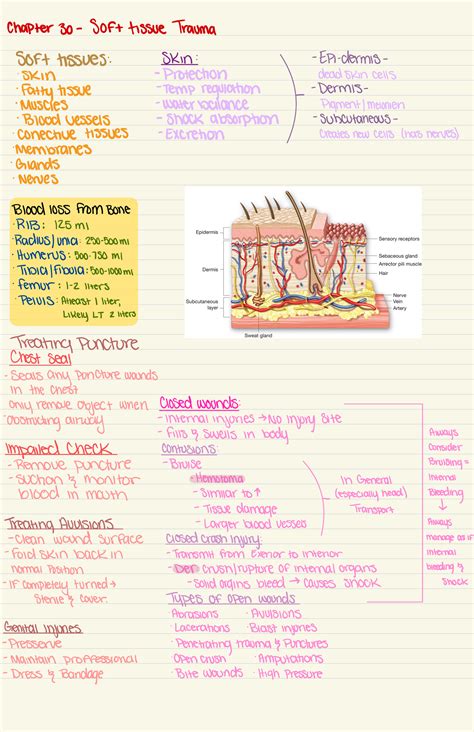 Chapter 30 - Soft tissue Trauma
Soft tissues:
· Skin
· Fatty tissue
· Muscles
· Blood vessels
· Conective tissues
· Membranes
· Glands
· Nerves
Skin:
- Protection
- Temp regulation
- Water balance
- Shock absorption
- Excretion
- Epi-dermis -
dead skin cells
- Dermis -
Pigment/
- Subcutaneous -
Creates new cells (has nerves)
Blood loss from Bone
· RIB: 125 ml
· Radius/ulna: 250-500 ml
· Humerus: 500-750 ml
· Tibia/fibula: 500-1000 ml
· femur: 1-2 liters
· Pelvis: Atleast 1 liter,
Likely LT 2 liters
Epidermis
Dermis
Subcutaneous
layer
Sweat gland
Sensory receptors
Sebaceous gland
Arrector pili muscle
Hair
Nerve
Vein
Artery
Treating Puncture
Chest Seal
- Seals any puncture wounds
in the chest
only remove object when
obstructing airway
Impailed Check
- Remove puncture
- Suction & monitor
blood in mouth
Treating Avulsions
- Clean wound surface
- Fold skin back in
normal Position
- If completely turned →
Sterile & cover.
Genital Injuries
- Preserve
- Maintain proffessional
- Dress & Bandage
Closed wounds:
- Internal injuries → No injury site
- Fills & swells in body
Contusions:
- Bruise
- Hematoma
- Similar to ↑
- Tissue damage
- Larger blood vessels
In General
(especially head)
Transport
Closed Crash Injury:
- Transmit from Exterior to interior
- Crush/rupture of internal organs
- Solid orgins bleed → causes shock
Always
Consider
Bruising =
Internal
Bleeding
↓
Always
manage as if
internal
bleeding &
Shock
Types of open wounds
· Abrasions · Avulsions
· Lacerations · Blast injuries
· Penetrating trauma & Punctures
· Open crush · Amputations
· Bite wounds · High Pressure